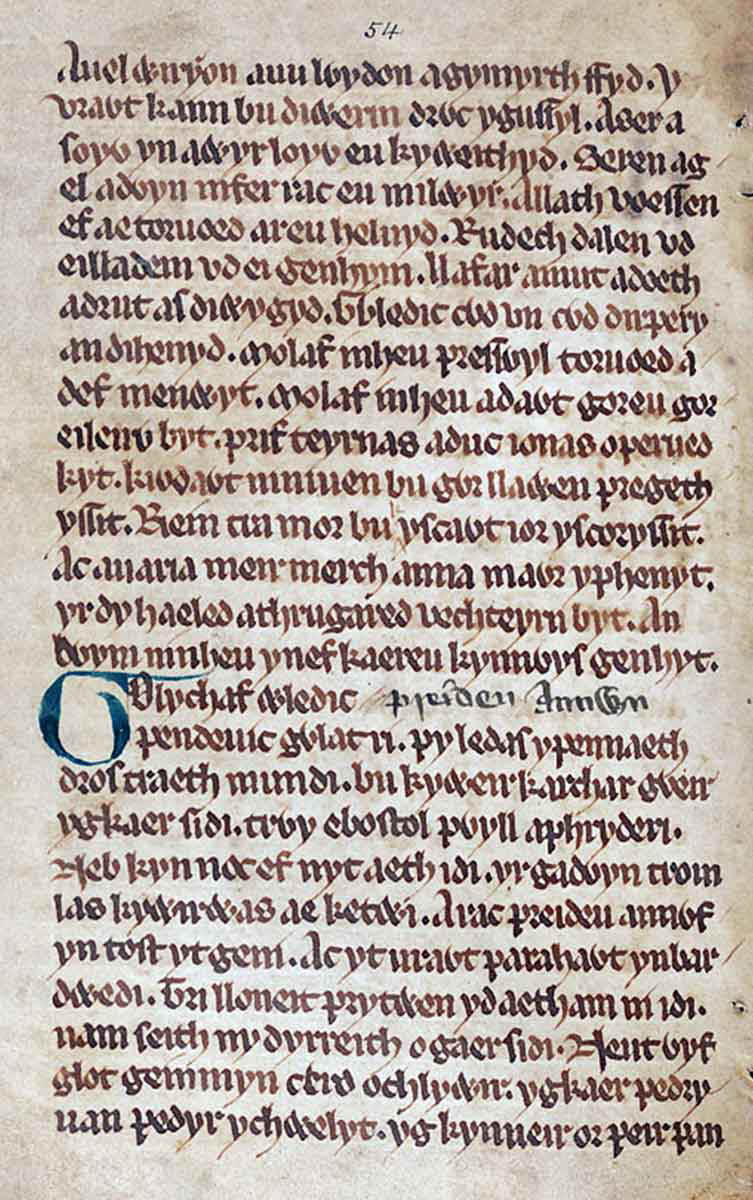 54
Auel gwyryon auu lwydon agymyrth ffyd. y
vrawt kann bu diwerin drwc ygussyl. Awer a
soyw yn awyr loyw eu kyweithyd. Seren ag
el adoyn infer rac eu milwyr. Allath voessen
ef ae toruoed areu heluyd. Rudech dalen vd
eilladem vd ei genhym. llafar amut adoeth
adrut as diwygyd. Gwledic cwd vn cwd du pery
an dihenyd. Molaf inheu presswyl toruoed a
def menwyt. Molaf inheu adawt goreu gor
eilenw byt. prif teyrnas aduc ionas operued
kyt. kiwdawt niniuen bu gwr llawen pregeth
yssit. Riein tra mor bu yscawt ior yscoryssit.
Ac auaria meir merch anna mawr yphenyt.
yr dy haeled athrugared vechteyrn byt. An
bwym ninheu ynef kaereu kynnwys genhyt.
Golychaf wledic preideu Annwn
pendeuic gwlat ri. py ledas ypennaeth
dros traeth mundi. bu kyweir karchar gweir
ygkaer sidi. trwy ebostol pwyll aphryderi.
Neb kyn noc ef nyt aeth idi. yr gadwyn trom
las kywirwas ae ketwi. Arac preideu annwf
yn tost yt geni. Ac yt urawt parahawt ynbar
dwedi. Tri lloneit prytwen yd aetham ni idi.
nam seith ny dyrreith ogaer sidi. Neut wyf
glot geinmyn cerd ochlywir. ygkaer pedry
uan pedyr ychwelyt. yg kynneir or peir pan